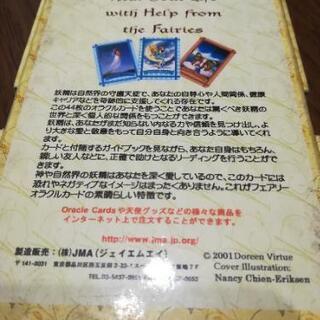 with Help from
the Fairies
妖精は自然界の守護天使で、あなたの自尊心や人間関係、健康
キャリアなどを奇跡的に支援してくれる存在です。
この44枚のオラクルカードを使うことであなたは驚くべき妖精の
世界と深く個人的な関係をもつことができます。
妖精は、あなたがまだ知らない内なる力や信頼を見つけ出し、よ
り大きな愛と敬意をもって自分自身と向き合うように導いてくれ
ます。
カードと付属するガイドブックを見ながら、あなた自身はもちろん、
親しい友人などに、正確で助けとなるリーディングを行うことがで
きます。
神や自然界の妖精はあなたを深く愛しているので、このカードには
恐れやネガティブなイメージはまったくありません。これがフェアリー
オラクルカードの素晴らしい特徴です。
Oracle Cardsや天使グッズなどの様々な商品を
インターネット上で注文することができます。
http://www.jma.jp.org/
製造販売:(株)JMA(ジェイエムエイ)
〒141-0031
© 2001 Doreen Virtue
Cover Illustration:
Nancy Chien-Eriksen